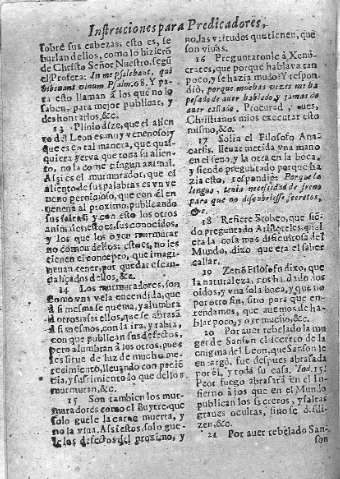 Instruciones para Predicadores,
sobre sus cabezas, esto es, se
burlan dellos, como lo hizierō
de Christo Señor Nuestro, segū
el Profeta: In me psalebant, qui
bibebant vinum Psalm. 68. Y pa
ra esto llaman à los que no lo
saben, para mejor publicar, y
deshonrarlos, &c.
13 Plinio dize, que el alien
to del Leon es muy venenoso, y
que es en tal manera, que qual-
quiera yerva que toca su alien-
to, no la come ningun animal.
Assi es el murmurador, que el
aliento de sus palabras es vn ve
neno perniciosо, que con èl en
venena al proximo, publicando
sus faltas, y con esto los otros
animales, esto es, sus conocidos,
y los que los oyen murmurar
no comen dellos: esto es, no les
tienen el concepto, que imagi-
nauan tener, por quedar escan-
dalizados dellos, &c.
14 Los murmuradores, son
como vna vela encendida, que
à si mesma se quema, y alumbra
à otros; assi ellos, que se abrasā
à si mesmos, con la ira, y rabia,
con que publican sus defectos,
pero alumbran à los otros, pues
les sirue de luz de mucho me-
recimiento, llevando con pacie
cia, y sufrimiento lo que dellos
murmuran, &c.
15 Son tambien los mur-
muradores como el Buytre, que
solo guele la carne muerta, y
no la viua. Assi estos, solo gue-
len los defectos del proximo, y
no las virtudes que tienen, que
son viuas.
16 Preguntaronle à Xenò-
crates, que porque hablava tan
poco, y se hazia mudo? Y respon
diò, porque muchas vezes me ha
pesado de auer hablado, y jamàs de
auer callado. Procurad, pues,
Christianos mios executar esto
mismo, &c.
17 Solia el Filosofo Ana-
carsis, lleuar metida vna mano
en el seno, y la otra en la boca,
y siendo preguntado porque ha
zia esto, respondiò: Porque la
lengua, tenia necesidad de freno
para que no descubriesse secretos,
&c.
18 Refiere Stobeo, que siē-
do preguntado Aristoteles, quàl
era la cosa mas dificultosa del
Mundo, dixo que era el saber
callar.
19 Zenō Filosofo dixo, que
la naturaleza, nos ha dado dos
oidos, y vna sola boca, y que no
por otro fin, sino para que en-
tendamos, que auemos de ha-
blar poco, y oir mucho, &c.
20 Por auer rebelado la mu
ger de Sanson el secreto de la
enigma del Leon, que Sanson le
encargò, fue despues abrasada
por el, y toda su casa. Iud. 15.
Peor fuego abrasarà en el In-
fierno à los que en el Mundo
publican los secretos, y faltas
graues ocultas, sino se desdi-
zen, &c.
21 Por auer rebelado San-
son